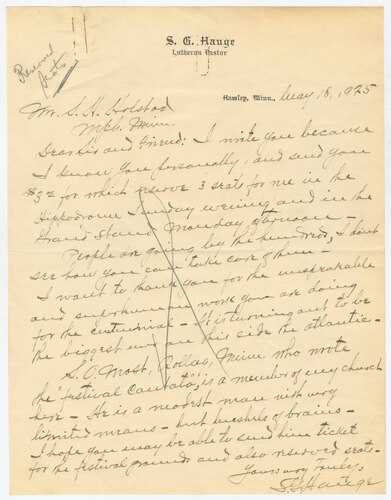 S. G. Hauge
Lutheran Pastor
Reserved
seats
Hawley, Minn., May 18, 1925
Mr. S. H. Holstad
Mpls. Minn.
Dear Sir and Friend: I write you because
I know you personally, and send you
$3.00 for which reserve 3 seats for me in the
Hippodrome Sunday evening and in the
Grand Stand Monday afternoon –
People are going by the hundreds, I don't
see how you can take care of them –
I want to thank you for the unspeakable
and superhuman work you are doing
for the centennial – It is turning out to be
the biggest on this side the atlantic –
S. O. Most, Rollag, Minn. who wrote
the "festival Cantata", is a member of my church
here – He is a modest man with very
limited means – but bushels of brains –
I hope you may be able to send him ticket
for the festival grounds and also reserved seats –
Yours very truly,
S. G. Hauge